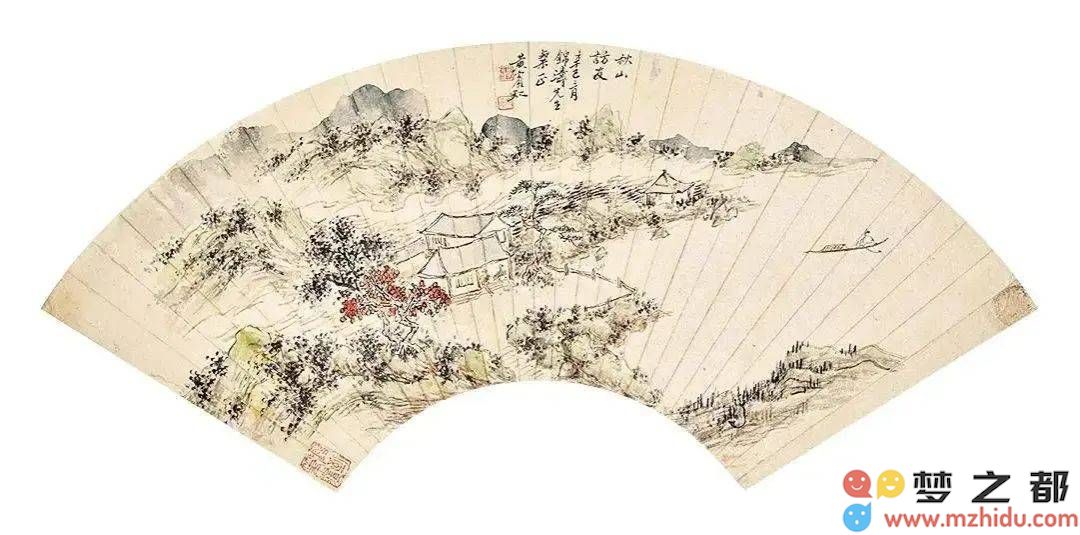 秋山
訪友
辛巳二月
錦濤先生
粲正
黃賓虹
梦之都
www.mzhidu.com